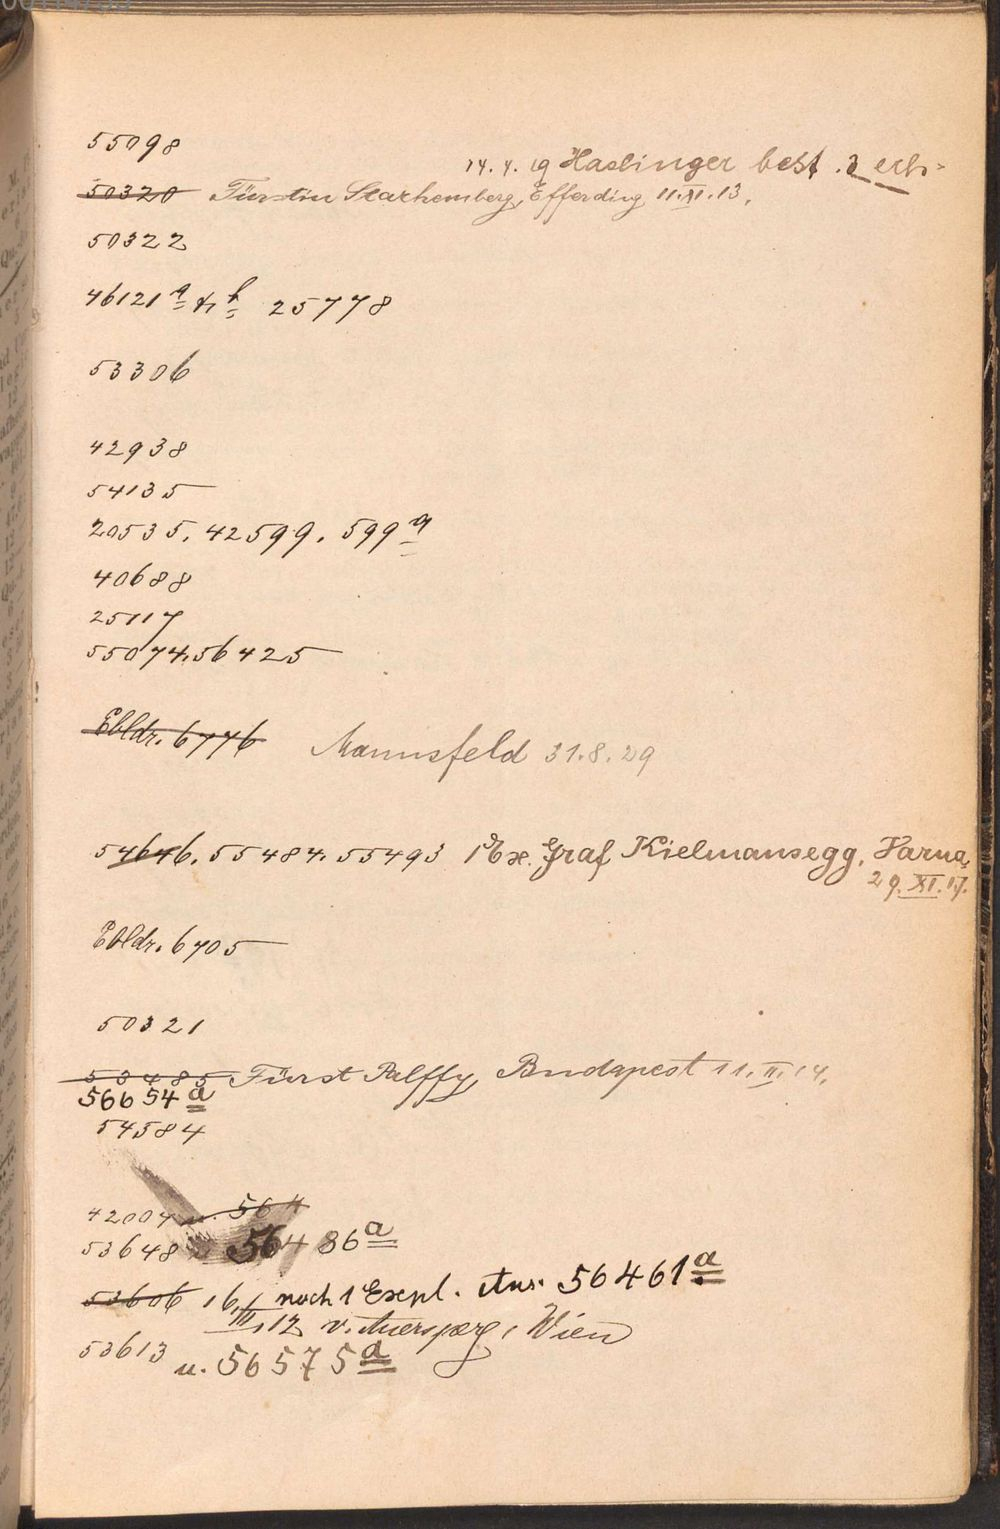 55098
14. 4. 19 Haslinger best. 2 erh.
50320 Fürstin Starhemberg, Efferding 11.XI.13.
50322
46121 a & b 25778
53306
42938
54135
20535. 42599. 599 a
40688
25117
55074. 56425
Ebldr. 6776 Mannsfeld 31.8.29
54646. 55484. 55493 1 Ex. Graf Kielmansegg, Varna,
29. XI. 17.
Ebldr. 6705
50321
50485 Fürst Palffy, Budapest 11. II. 14.
56654 a
54584
42004 u. 564
53648 u. 56486 a
53606 16/III.12 noch 1 Exepl. Aus. 56461 a
v. Auersperg, Wien
53613 u. 56575 a